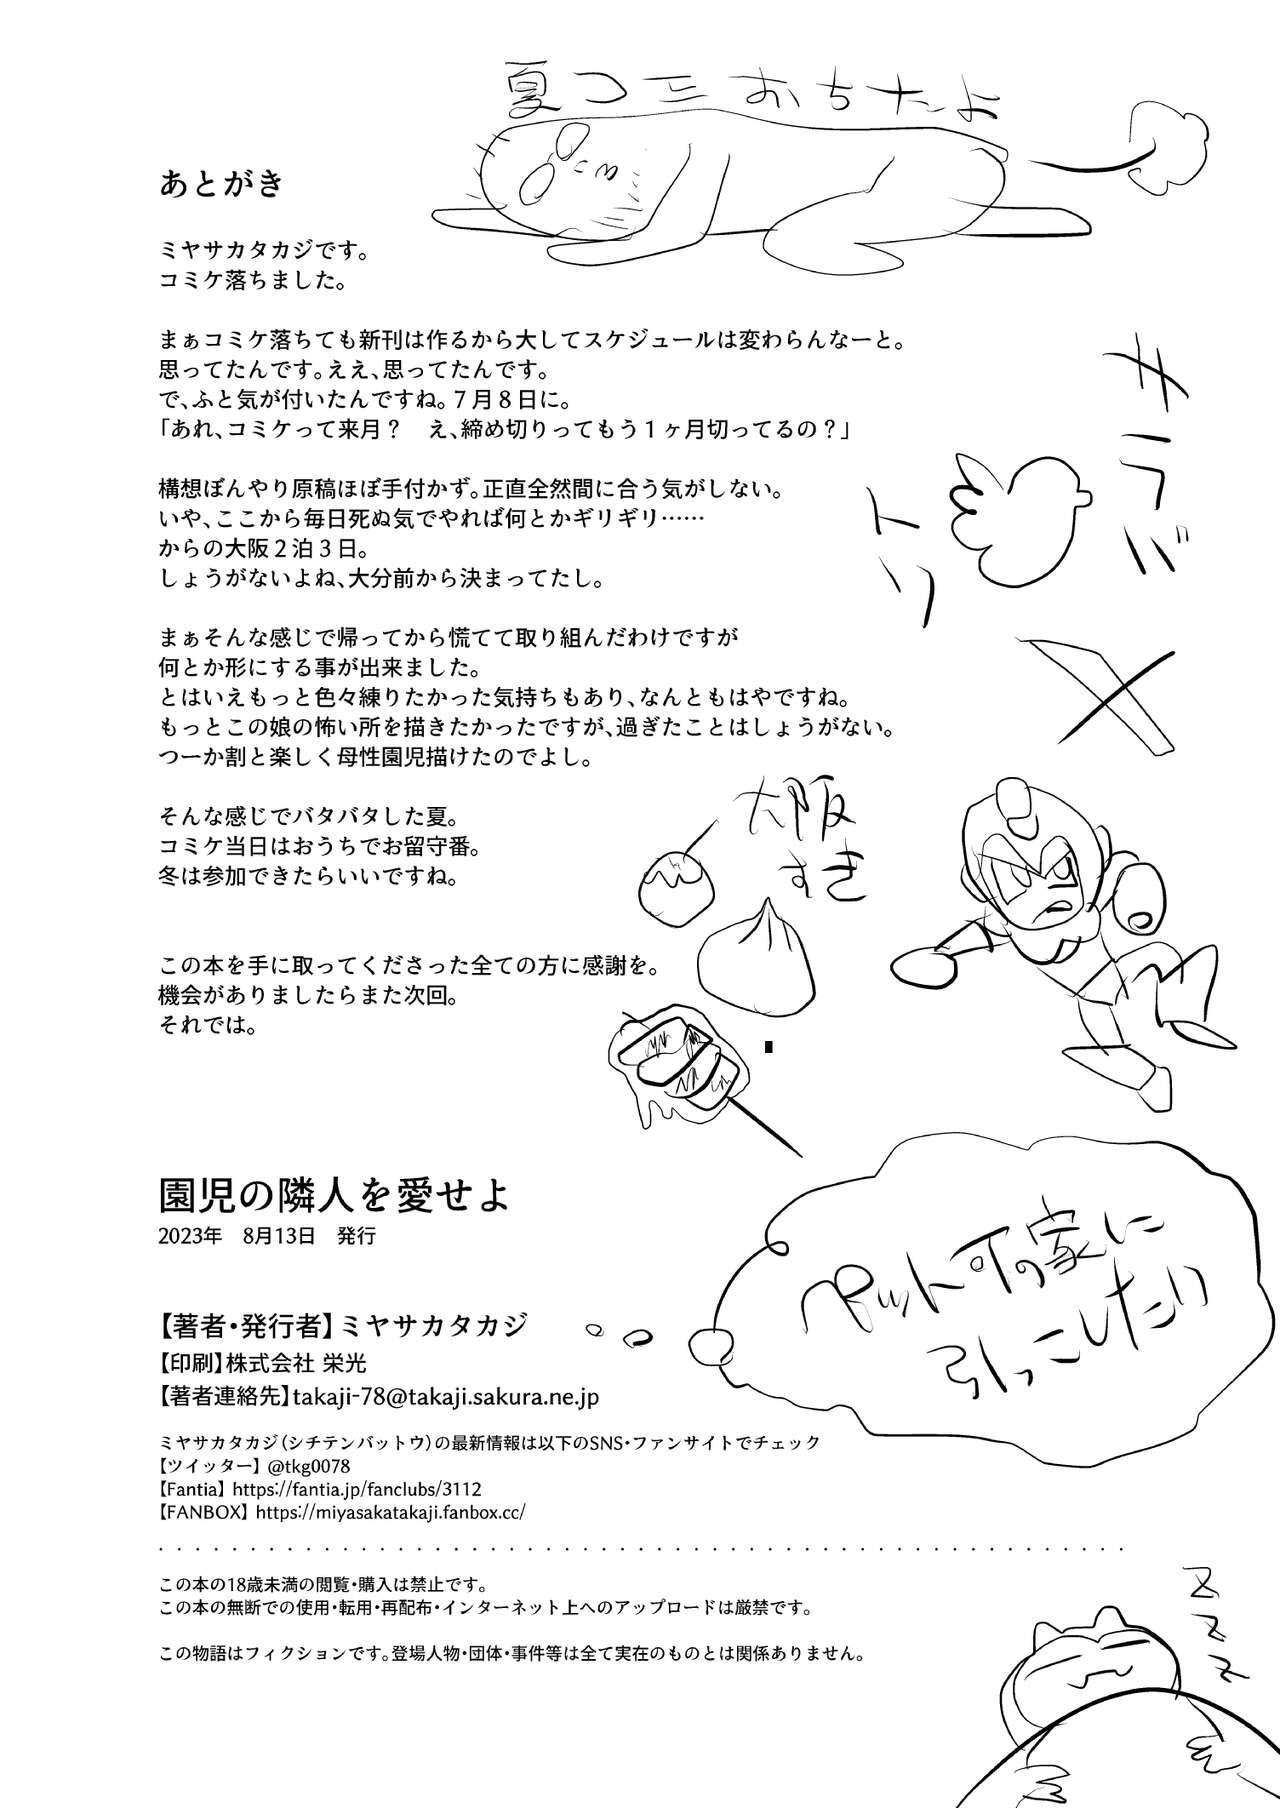 夏コミおちたよ
あとがき
ミヤサカタカジです。
コミケ落ちました。
まぁコミケ落ちても新刊は作るから大してスケジュールは変わらんなーと。
思ってたんです。ええ、思ってたんです。
で、ふと気が付いたんですね。７月８日に。
「あれ、コミケって来月？　え、締め切りってもう１ヶ月切ってるの？」
構想ぼんやり原稿ほぼ手付かず。正直全然間に合う気がしない。
いや、ここから毎日死ぬ気でやれば何とかギリギリ……
からの大阪２泊３日。
しょうがないよね、大分前から決まってたし。
まぁそんな感じで帰ってから慌てて取り組んだわけですが
何とか形にする事が出来ました。
とはいえもっと色々練りたかった気持ちもあり、なんともはやですね。
もっとこの娘の怖い所を描きたかったですが、過ぎたことはしょうがない。
つーか割と楽しく母性園児描けたのでよし。
そんな感じでバタバタした夏。
コミケ当日はおうちでお留守番。
冬は参加できたらいいですね。
この本を手に取ってくださった全ての方に感謝を。
機会がありましたらまた次回。
それでは。
サラバ
トリ
X
大阪
すき
園児の隣人を愛せよ
2023年　8月13日　発行
【著者・発行者】ミヤサカタカジ
【印刷】株式会社 栄光
【著者連絡先】takaji-78@takaji.sakura.ne.jp
ペット可の家に
引っこしたい
ミヤサカタカジ（シチテンバットウ）の最新情報は以下のSNS・ファンサイトでチェック
【ツイッター】@tkg0078
【Fantia】https://fantia.jp/fanclubs/3112
【FANBOX】https://miyasakatakaji.fanbox.cc/
この本の18歳未満の閲覧・購入は禁止です。
この本の無断での使用・転用・再配布・インターネット上へのアップロードは厳禁です。
この物語はフィクションです。登場人物・団体・事件等は全て実在のものとは関係ありません。
Z
Z
Z